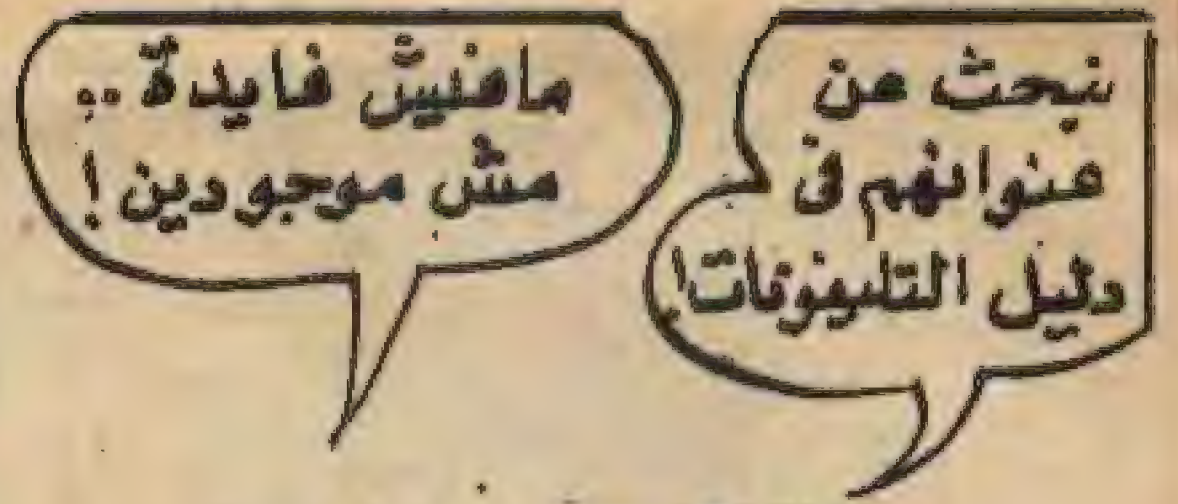 نبحث عن
عنوانهم في
دليل التليفونات!
مافيش فايدة ..
مش موجودين !